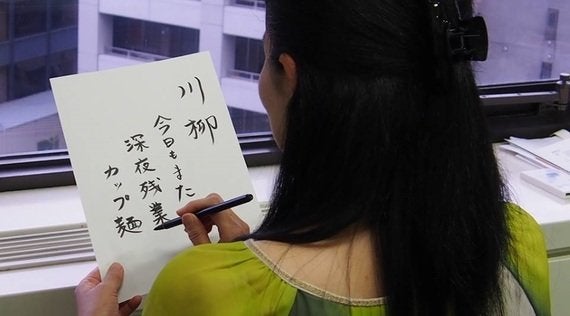 川柳
今日もまた
深夜残業
カップ麺